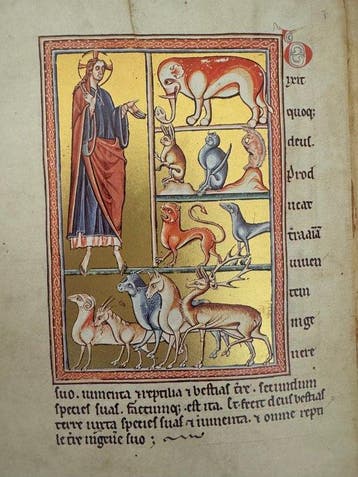 D
ixit
quoq;
deus.
Prod
ucat
uiuen
tem
in ge
nere
suo. iumenta & reptilia & bestias t̄re. secundum
species suas. factumq; est ita. Et fecit deus bestias
terre iuxta species suas & iumenta. & omne repti
le t̄re in genere suo ;